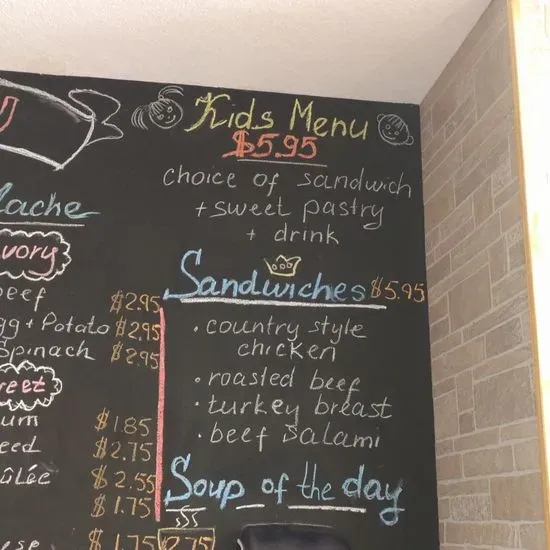 Kids Menu
$5.95
choice of sandwich
+ sweet pastry
+ drink
Sandwiches $5.95
• country style
chicken
• roasted beef
• turkey breast
• beef salami
Soup of the day
2.75
U
lache
vory
beef $2.95
gg + Potato $2.95
Spinach $2.95
eet
um $1.85
eed $2.75
ûlée $2.55
$1.75
ese $1.75